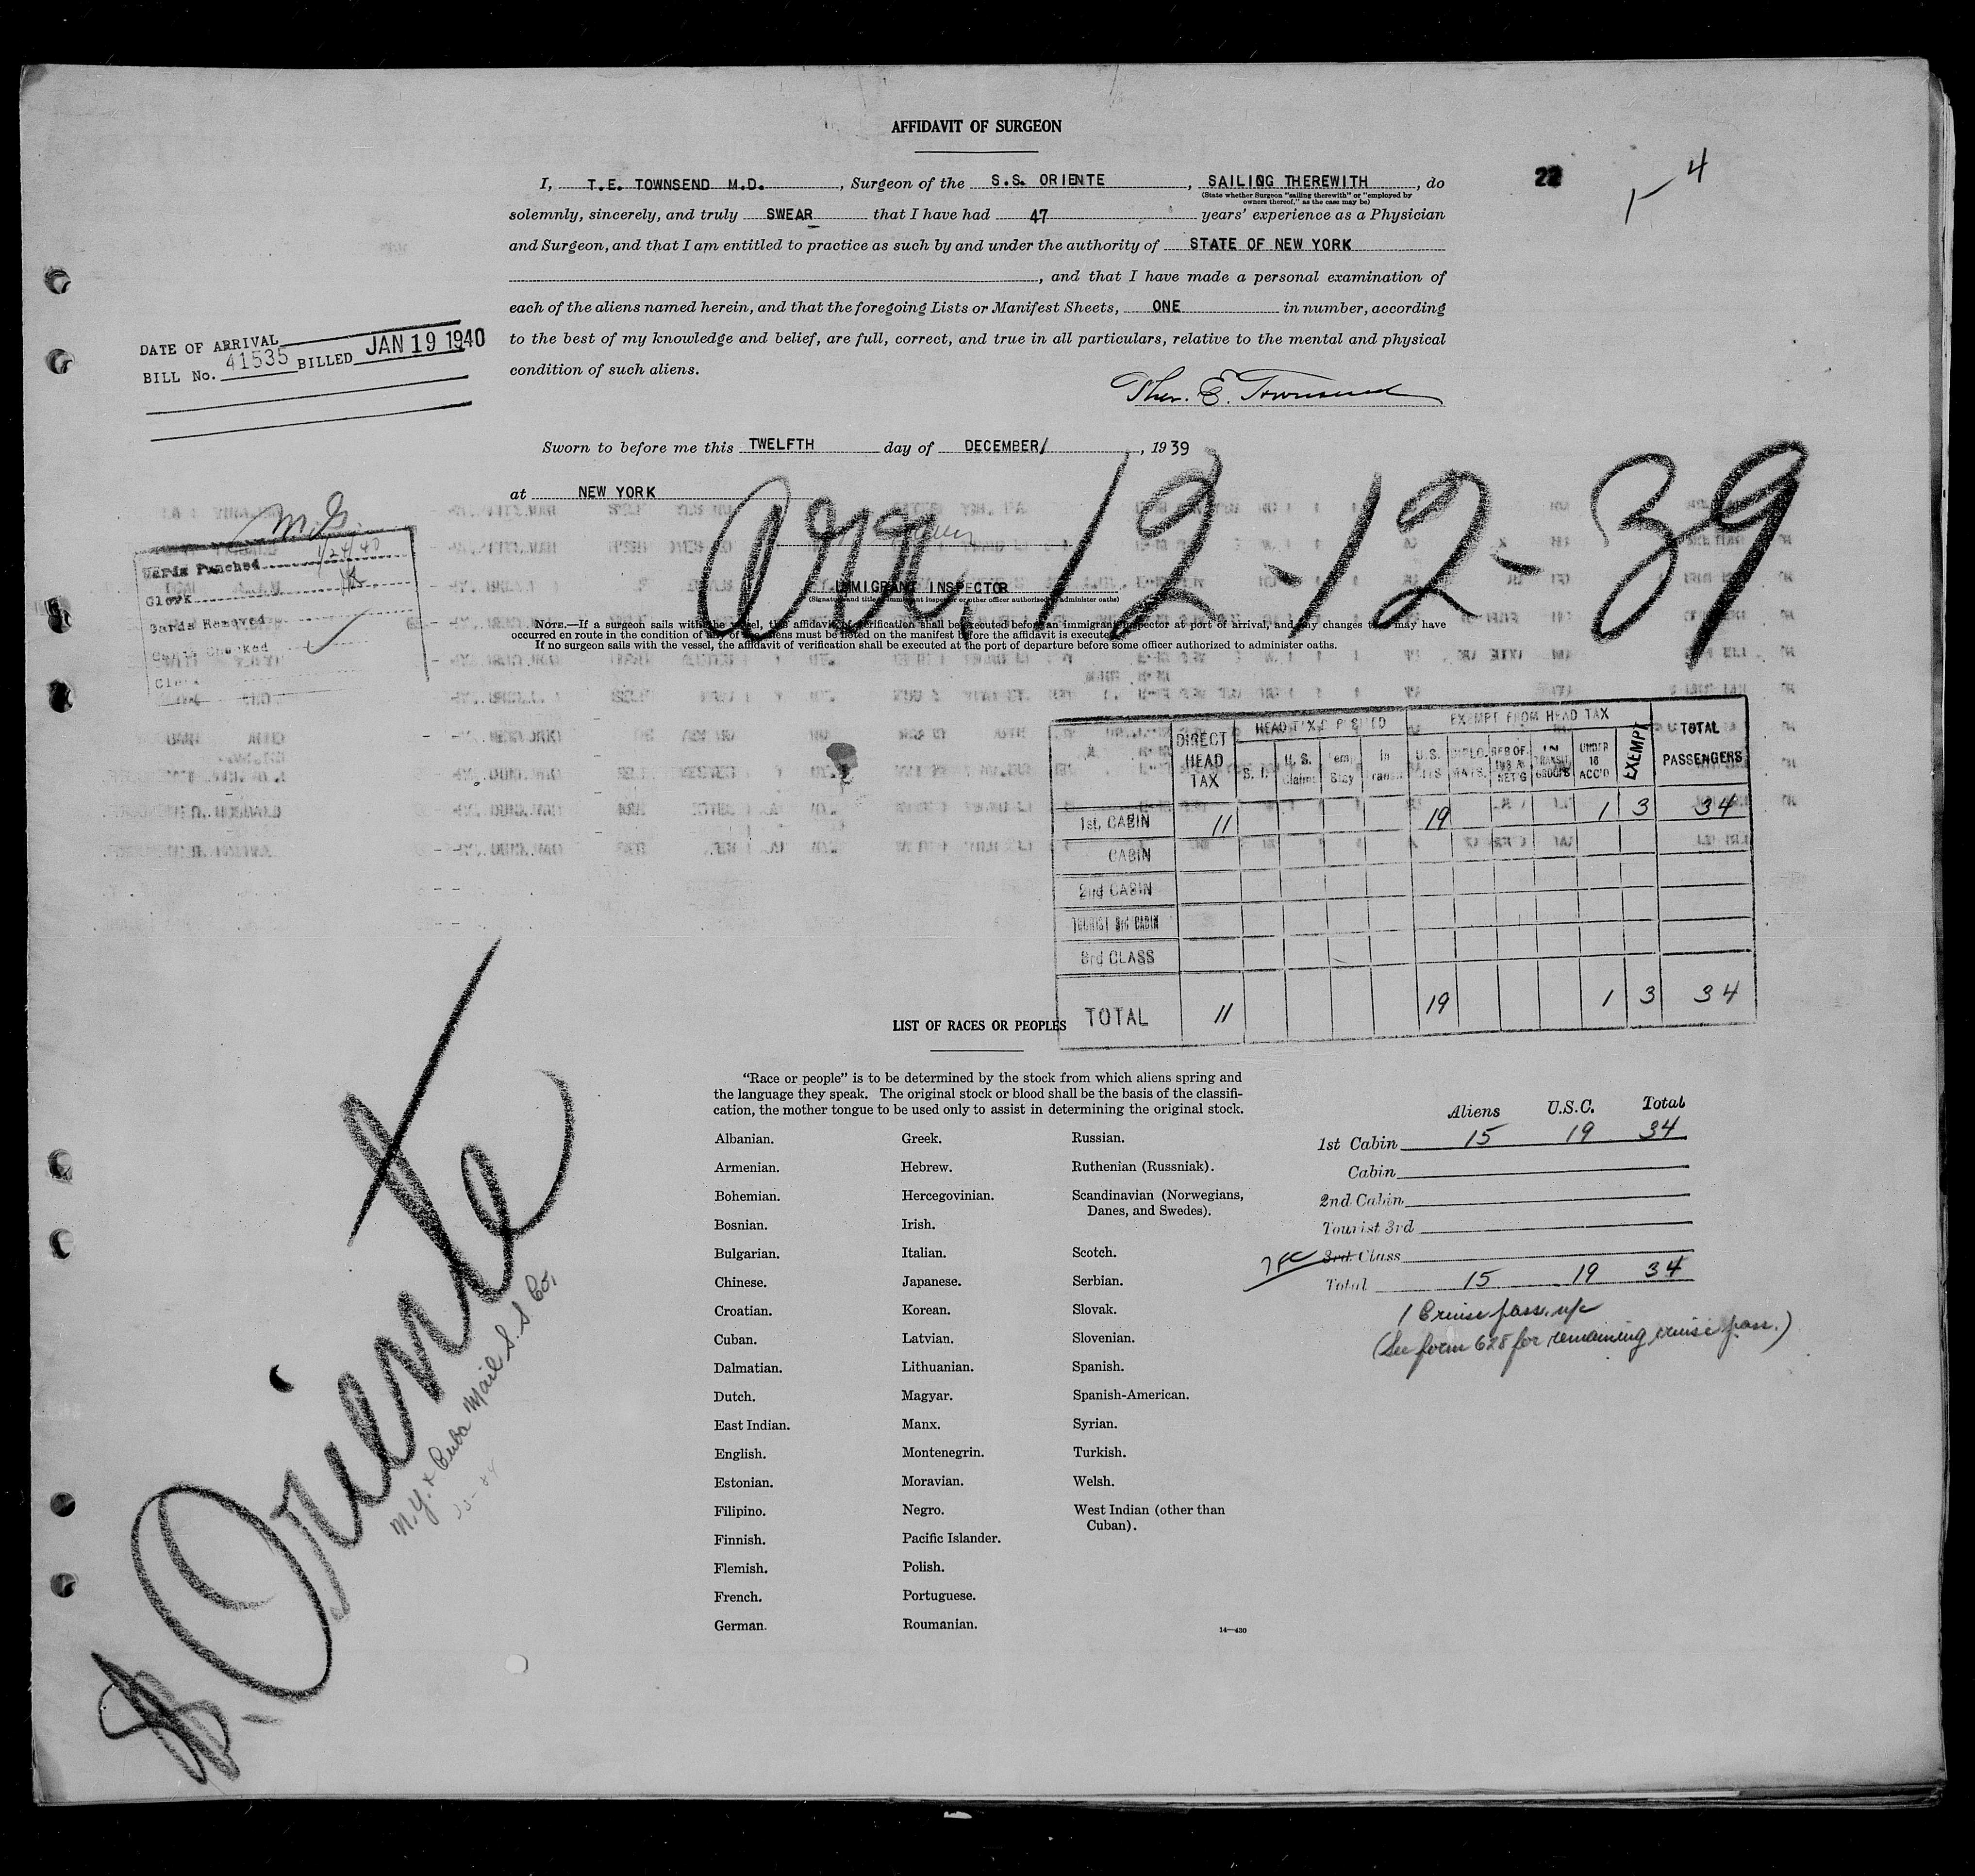 AFFIDAVIT OF SURGEON
22
4
I, T.E. TOWNSEND M.D., Surgeon of the S.S. ORIENTE, SAILING THEREWITH, do
(State whether Surgeon "sailing therewith" or "employed by
owners thereof," as the case may be)
solemnly, sincerely, and truly SWEAR that I have had 47 years' experience as a Physician
and Surgeon, and that I am entitled to practice as such by and under the authority of STATE OF NEW YORK
, and that I have made a personal examination of
each of the aliens named herein, and that the foregoing Lists or Manifest Sheets, ONE in number, according
to the best of my knowledge and belief, are full, correct, and true in all particulars, relative to the mental and physical
condition of such aliens.
Theo. E. Townsend
DATE OF ARRIVAL
BILL No. 41535 BILLED JAN 19 1940
Sworn to before me this TWELFTH day of DECEMBER/, 1939
at NEW YORK
Arr. 12-12-39
IMMIGRANT INSPECTOR
(Signature and title of immigrant inspector or other officer authorised to administer oaths)
NOTE.—If a surgeon sails with the vessel, this affidavit of verification shall be executed before an immigrant inspector at port of arrival, and any changes that may have
occurred en route in the condition of any of the aliens must be noted on the manifest before the affidavit is executed.
If no surgeon sails with the vessel, the affidavit of verification shall be executed at the port of departure before some officer authorized to administer oaths.
Cards Punched 1/24/40
Clerk
Cards Removed
Cards Checked
Clerk
DIRECT HEAD TAX
HEAD TAX DEPOSITED
EXEMPT FROM HEAD TAX
TOTAL PASSENGERS
S. I. U. S. Claims Temp Stay In Transit U.S. CITS DIPLOMATS UNDER 16 ACC'D EXEMPT
1st. CABIN 11 19 1 3 34
CABIN
2nd CABIN
TOURIST 3rd CABIN
3rd CLASS
TOTAL 11 19 1 3 34
LIST OF RACES OR PEOPLES
"Race or people" is to be determined by the stock from which aliens spring and
the language they speak. The original stock or blood shall be the basis of the classifi-
cation, the mother tongue to be used only to assist in determining the original stock.
Albanian.
Armenian.
Bohemian.
Bosnian.
Bulgarian.
Chinese.
Croatian.
Cuban.
Dalmatian.
Dutch.
East Indian.
English.
Estonian.
Filipino.
Finnish.
Flemish.
French.
German.
Greek.
Hebrew.
Hercegovinian.
Irish.
Italian.
Japanese.
Korean.
Latvian.
Lithuanian.
Magyar.
Manx.
Montenegrin.
Moravian.
Negro.
Pacific Islander.
Polish.
Portuguese.
Roumanian.
Russian.
Ruthenian (Russniak).
Scandinavian (Norwegians,
Danes, and Swedes).
Scotch.
Serbian.
Slovak.
Slovenian.
Spanish.
Spanish-American.
Syrian.
Turkish.
Welsh.
West Indian (other than
Cuban).
14—430
Aliens U.S.C. Total
1st Cabin 15 19 34
Cabin
2nd Cabin
Tourist 3rd
3rd Class
Total 15 19 34
1 Cruise pass. u/c
(See form 628 for remaining cruise pass.)
Oriente
N.Y. & Cuba Mail S.S. Co.